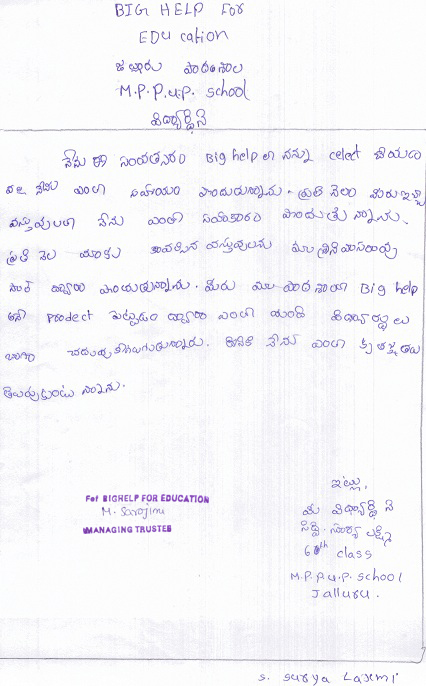 BIG HELP FOR
EDUcation
జల్లూరు పాఠశాల
M.P.P.U.P. school
విద్యార్థినే
నేను ఈ సంవత్సరం Big help లో నన్ను celect చేయడం
వల్ల నేను ఎంతో సహాయం పొందుతున్నాను. ప్రతి నెలా మీరు ఇచ్చే
వస్తువులతో నేను ఎంతో సహకారం పొందుతున్నాను.
ప్రతి నెల మాకు కావలసిన వస్తువులను మా శ్రీనివాసరావు
సార్ ద్వారా పొందుతున్నాను. మీరు మా పాఠశాలలో Big help
అనే Prodect పెట్టడం ద్వారా ఎంతో మంది విద్యార్థులు
బాగా చదువుకోగలుగుతున్నారు. కనుక నేను ఎంతో కృతజ్ఞతలు
తెలుపుకుంటున్నాను.
ఇట్లు,
For BIGHELP FOR EDUCATION
M. Sarojini
MANAGING TRUSTEE
మీ విద్యార్థినే
సూర్య లక్ష్మి
6th class
M.P.P.U.P. School
Jalluru.
S. Surya Laxmi